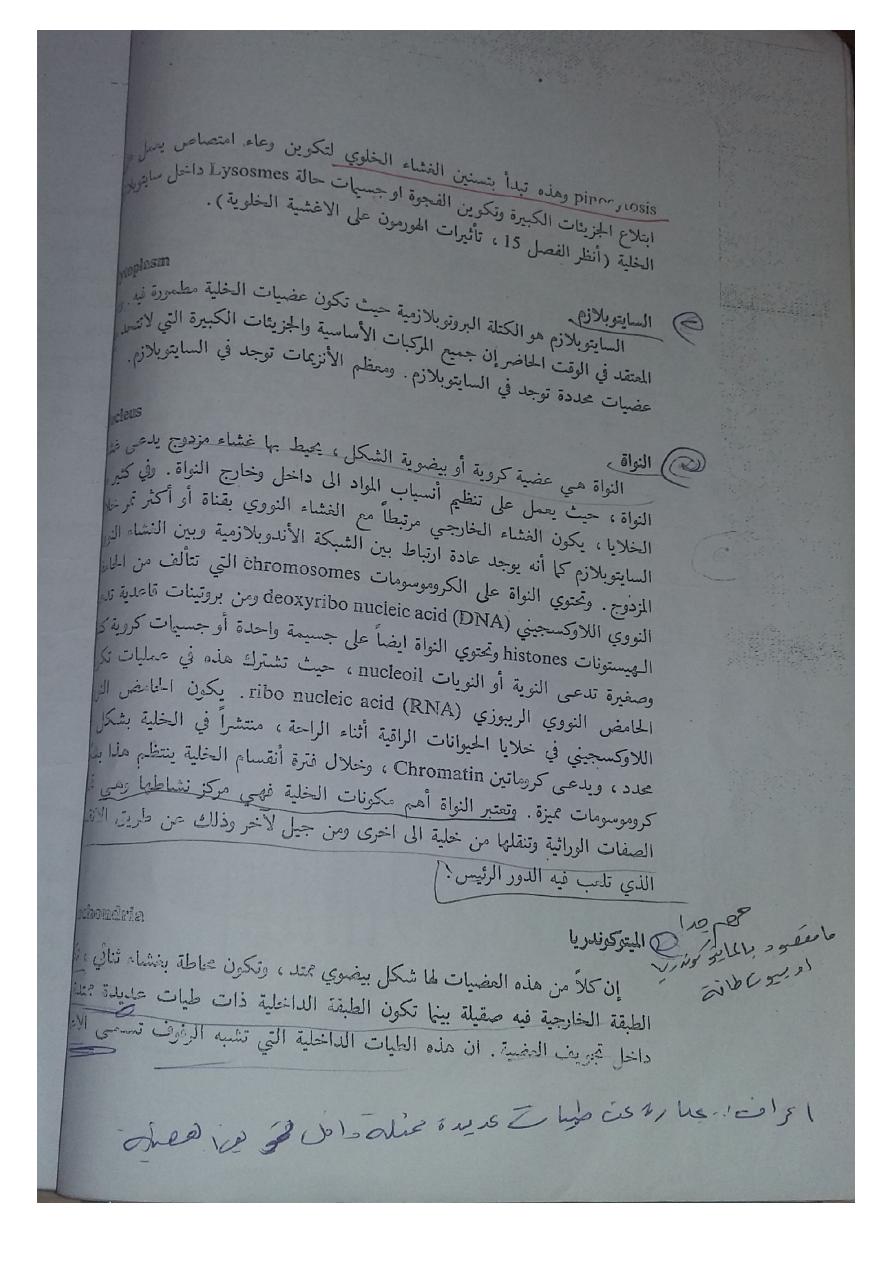 pinocytosis وهذه تبدأ بتسنين الغشاء الخلوي لتكوين وعاء امتصاص يعمل
ابتلاع الجزيئات الكبيرة وتكوين الفجوة او جسيمات حالة Lysosmes داخل
الخلية (أنظر الفصل 15 ، تأثيرات الهورمون على الاغشية الخلوية).
السايتوبلازم
السايتوبلازم هو الكتلة البروتوبلازمية حيث تكون عضيات الخلية مطمورة فيه.
المعتقد في الوقت الحاضر إن جميع المركبات الأساسية والجزيئات الكبيرة التي
عضيات محددة توجد في السايتوبلازم. ومعظم الأنزيمات توجد في السايتوبلازم.
النواة
النواة هي عضية كروية أو بيضوية الشكل ، يحيط بها غشاء مزدوج يدعى
النواة ، حيث يعمل على تنظيم أنسياب المواد الى داخل وخارج النواة. وفي كثير
الخلايا ، يكون الغشاء الخارجي مرتبطاً مع الغشاء النووي بقناة أو أكثر تمر
السايتوبلازم كما أنه يوجد عادة ارتباط بين الشبكة الأندوبلازمية وبين
المزدوج. وتحتوي النواة على الكروموسومات chromosomes التي تتألف من
النووي اللاوكسجيني deoxyribo nucleic acid (DNA) ومن بروتينات قاعدية
الهيستونات histones وتحتوي النواة ايضاً على جسيمة واحدة أو جسيمات كروية
وصغيرة تدعى النوية أو النويات nucleoil ، حيث تشترك هذه في عمليات
الحامض النووي الريبوزي ribo nucleic acid (RNA). يكون الحامض
اللاوكسجيني في خلايا الحيوانات الراقية أثناء الراحة ، منتشراً في الخلية بشكل
محدد ، ويدعى كروماتين Chromatin ، وخلال فترة أنقسام الخلية ينتظم هذا
كروموسومات مميزة. وتعتبر النواة أهم مكونات الخلية فهي مركز نشاطها وهي
الصفات الوراثية وتنقلها من خلية الى اخرى ومن جيل لآخر وذلك عن طريق
الذي تلعب فيه الدور الرئيس!
مهم جدا
الميتوكوندريا
إن كلاً من هذه العضيات لها شكل بيضوي ممتد ، وتكون محاطة بغشاء ثنائي ،
الطبقة الخارجية فيه صقيلة بينما تكون الطبقة الداخلية ذات طيات عديدة ممتدة
داخل تجويف العضية. ان هذه الطيات الداخلية التي تشبه الرفوف تسمى
عبارة عن طيات عديدة ممتدة داخل